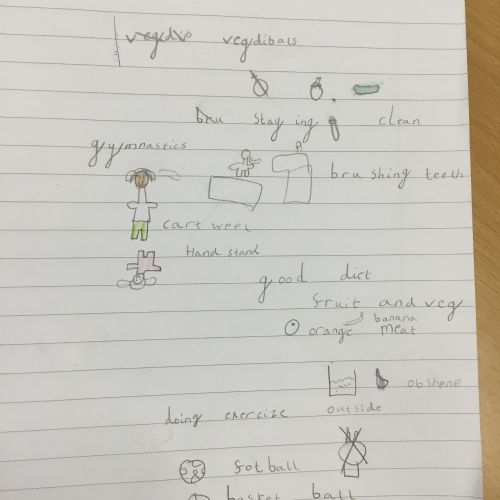 vegdibals
stay ing clean
gymnastics
brushing teeth
cart weel
Hand stand
good dict
fruit and veg
banana
orange meat
obshene
outside
doing exercize
fotball
basket ball